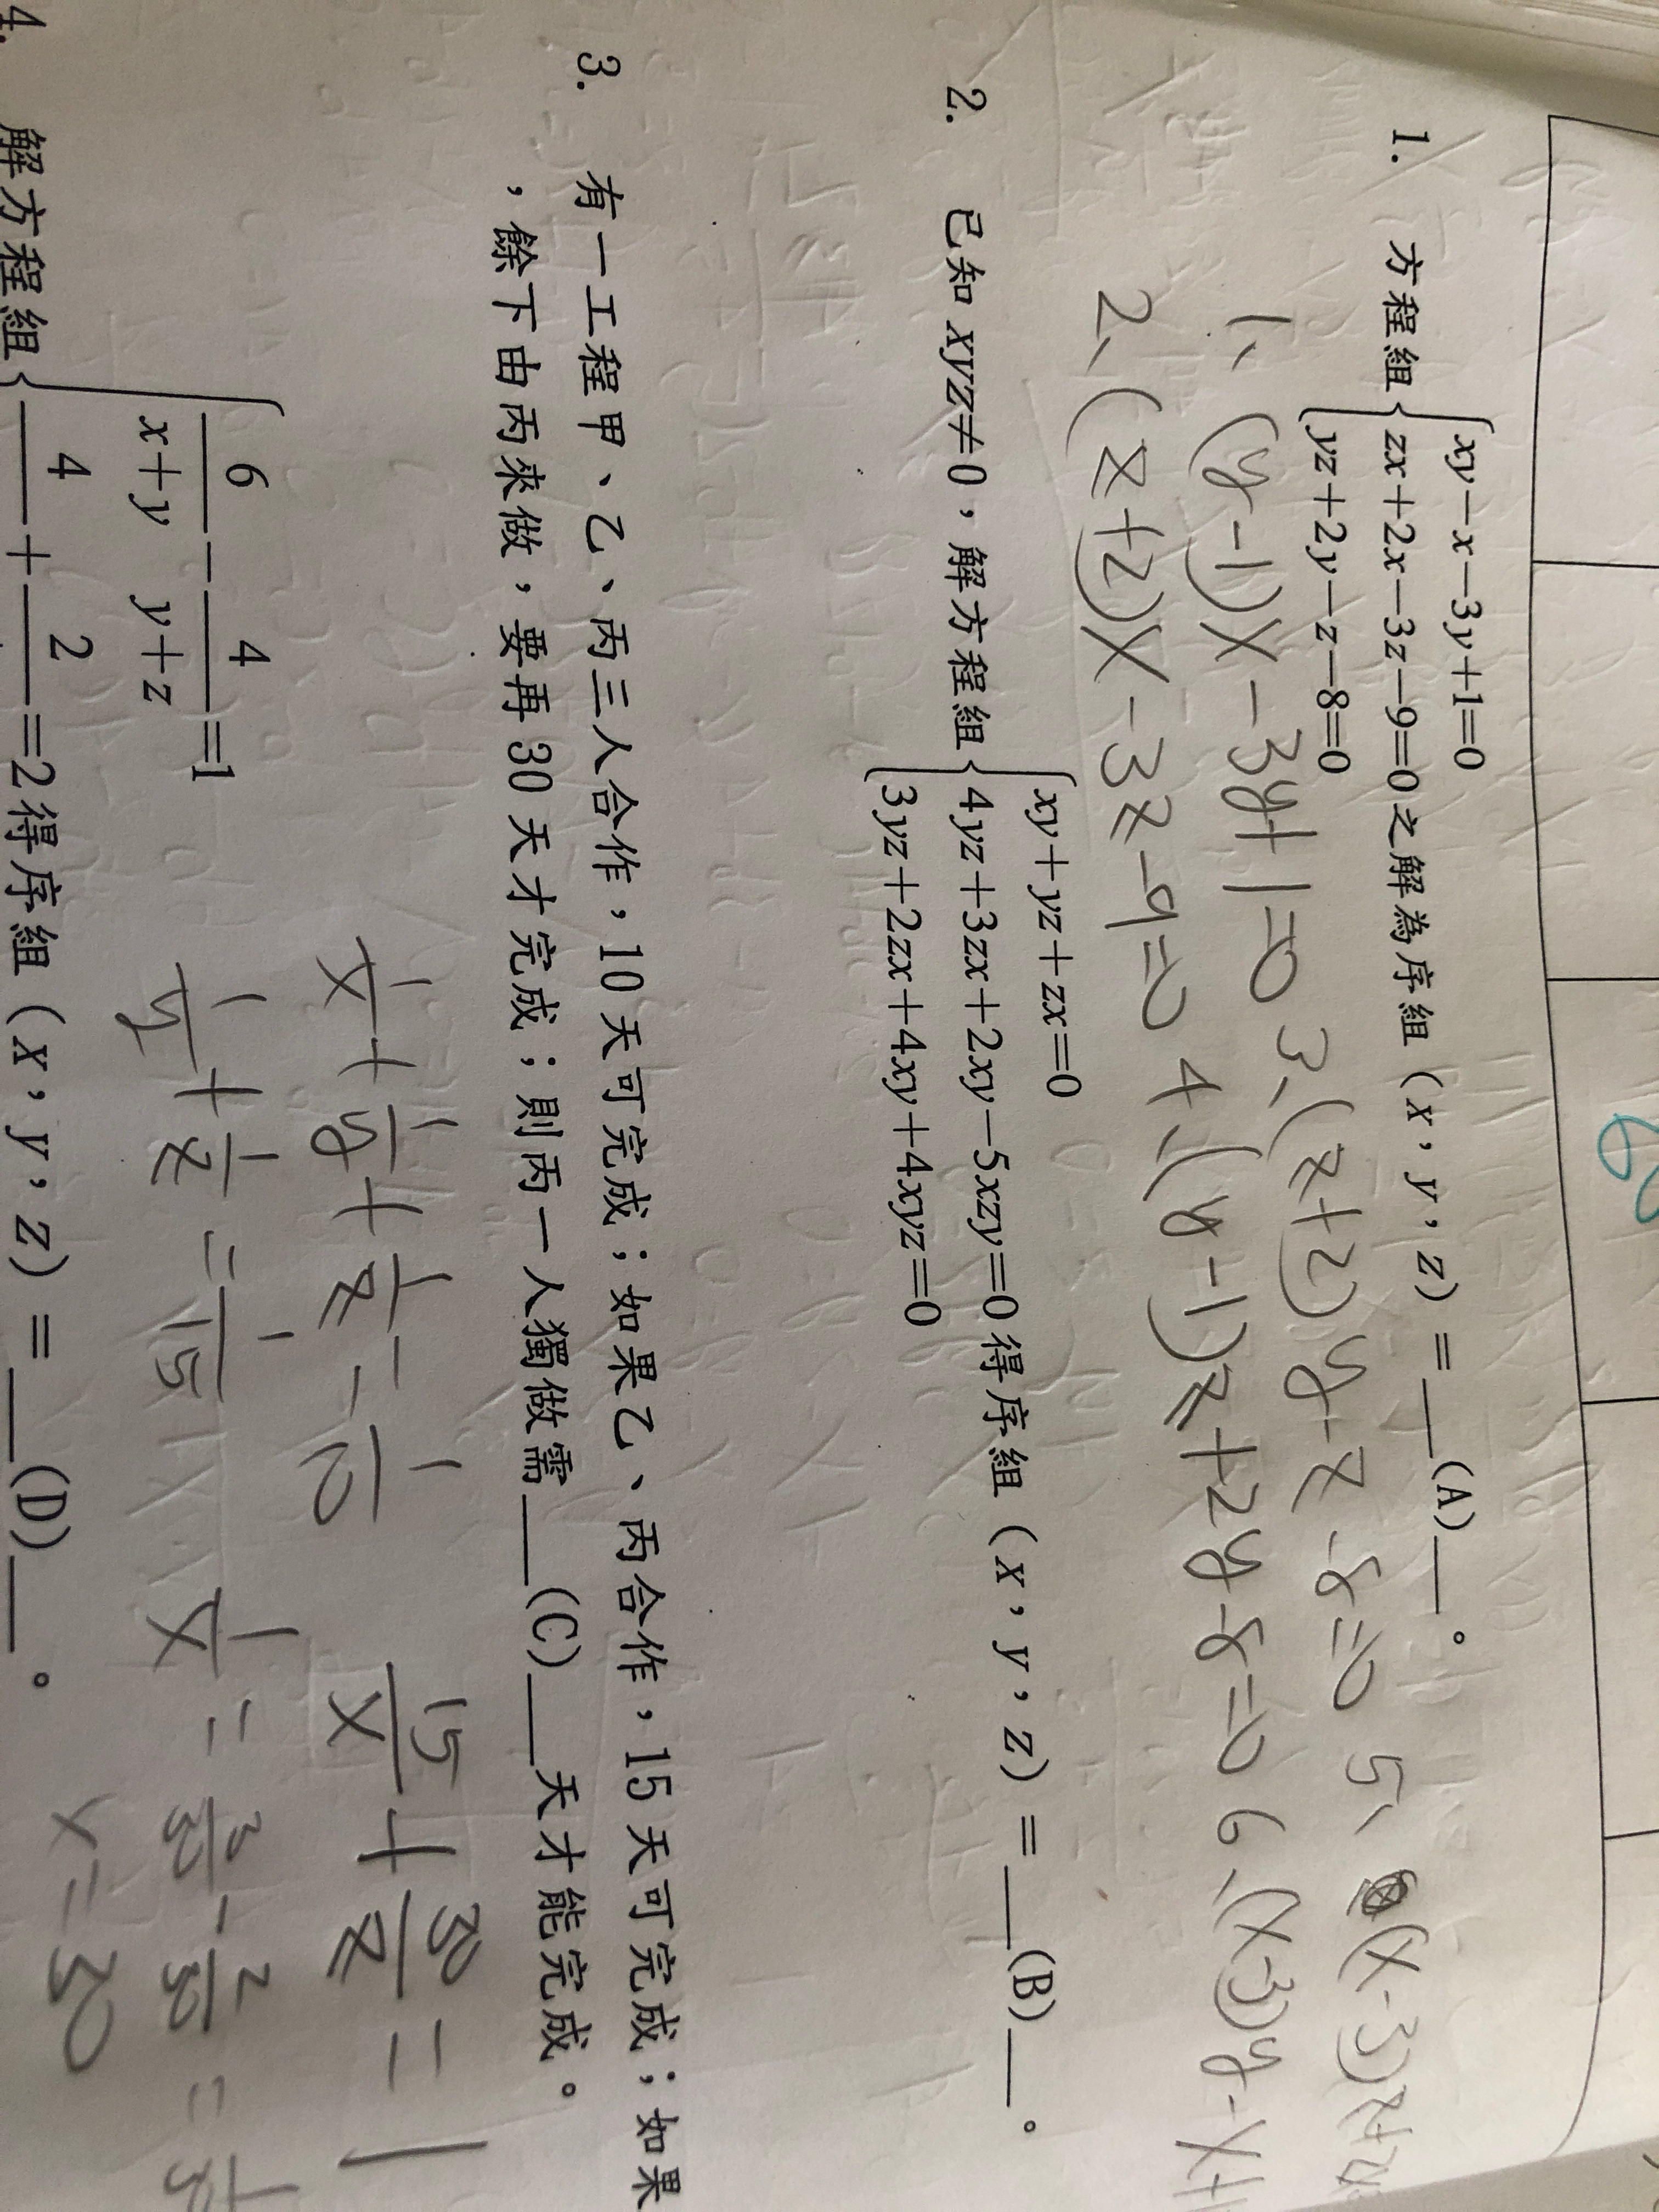 1. 方程組
xy－x－3y＋1＝0
zx＋2x－3z－9＝0
yz＋2y－z－8＝0
之解為序組（x，y，z）＝(A)。
1、(y-1)x-3y+1=0
2、(z+2)x-3z-9=0
3、(z+2)y-z-8=0
4、(y-1)z+2y-8=0
5、(x-3)z+2x
6、(x-3)y-x+1
2. 已知 xyz≠0，解方程組
xy＋yz＋zx＝0
4yz＋3zx＋2xy－5xzy＝0
3yz＋2zx＋4xy＋4xyz＝0
得序組（x，y，z）＝(B)。
3. 有一工程甲、乙、丙三人合作，10 天可完成；如果乙、丙合作，15 天可完成；如果
，餘下由丙來做，要再 30 天才完成；則丙一人獨做需(C)天才能完成。
1/x + 1/y + 1/z = 1/10
15/x + 30/z = 1
1/y + 1/z = 1/15
1/x = 3/30 - 2/30 = 1/30
x = 30
4. 解方程組
6/(x＋y)－4/(y＋z)＝1
4 ＋ 2 ＝2
得序組（x，y，z）＝(D)。